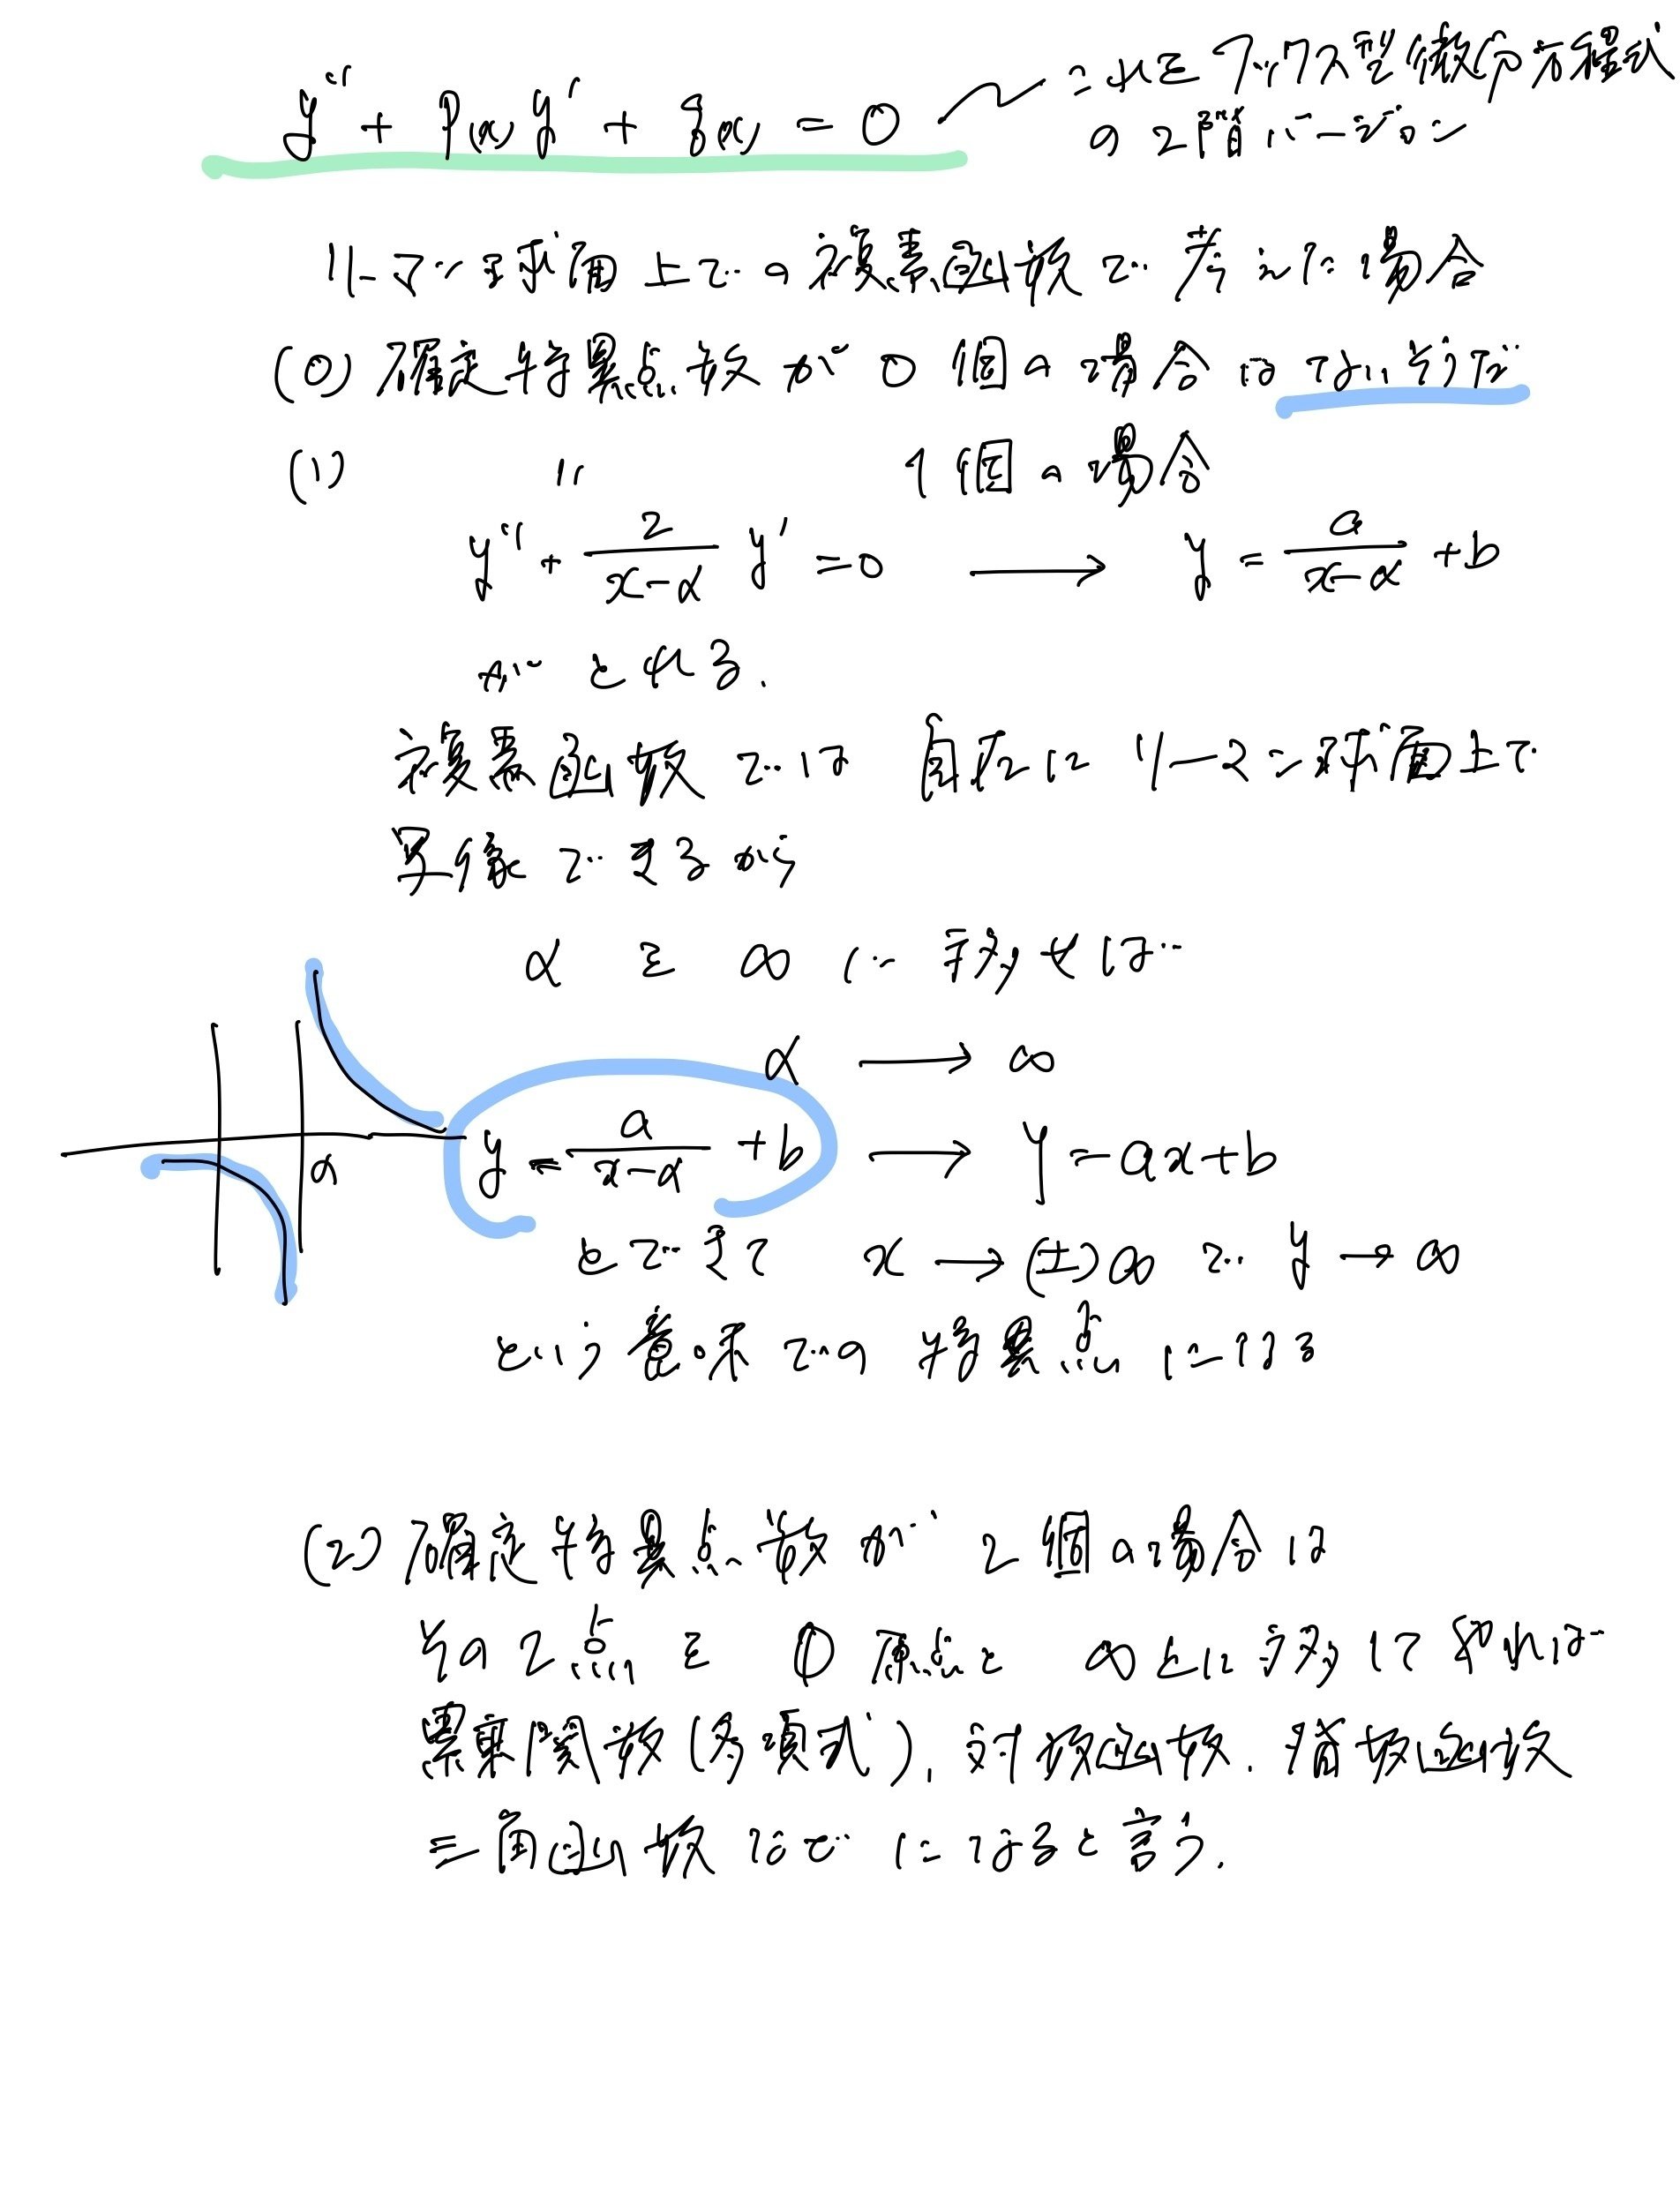 y'' + p(x) y' + q(x) = 0 これをフックス型微分方程式
の2階バージョン
リーマン球面上での複素函数で考えた場合
(0) 確定特異点数が 0 個の場合はないそうだ
(1) 〃 1個の場合
y'' + 2/(x-α) y' = 0 → y = a/(x-α) + b
がとれる.
複素函数では 自在に リーマン球面上で
写像できるから
α を ∞ に 移せば
α → ∞
α
y = a/(x-α) + b → y = ax+b
とできて x → (±)∞ で y → ∞
という意味での 特異点 になる
(2) 確定特異点数が 2個の場合は
その2点を 0 原点と ∞とに移してやれば
累乗関数(多項式), 対数函数. 指数函数
三角函数などになると言う.